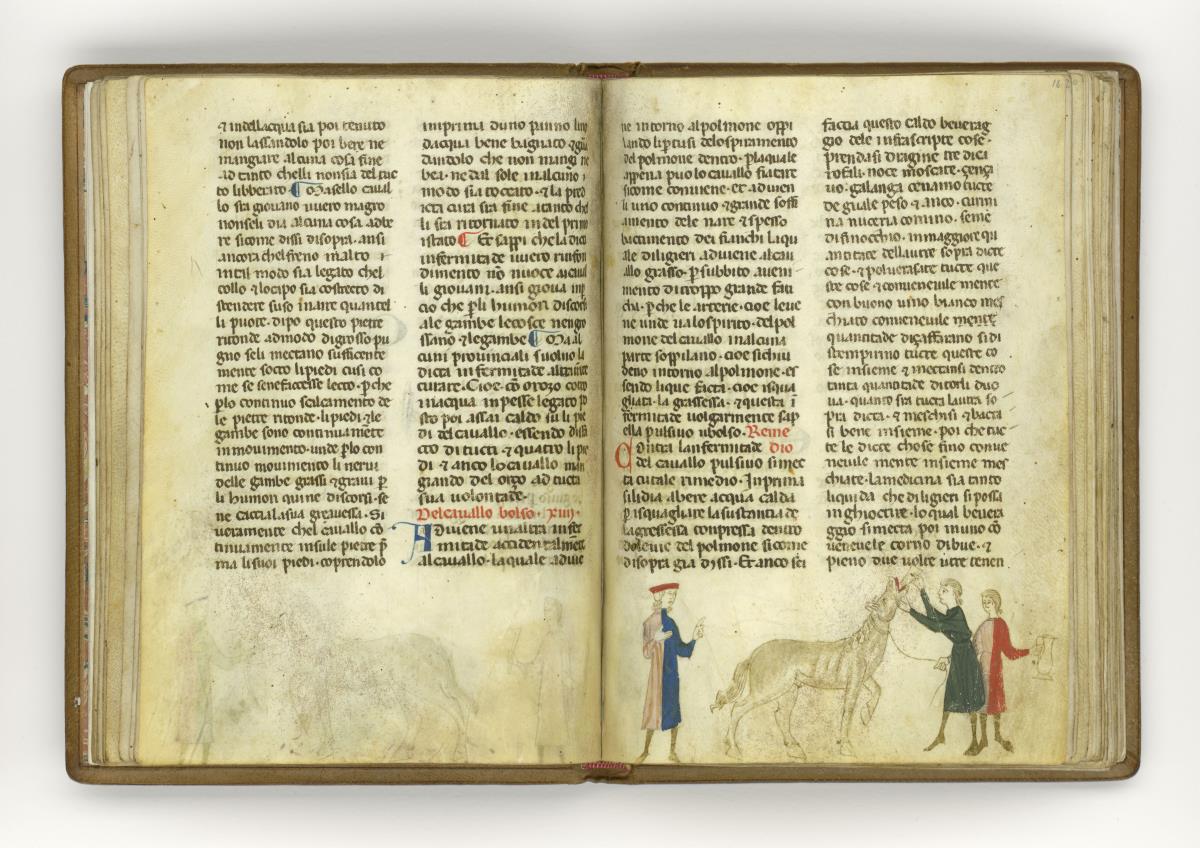 ⁊ indellacqua sia poi tenuto
non lassandolo poi bere ne
mangiare alcuna cosa fine
ad tanto chelli non sia del tuc
to libberato ¶ Ma se lo caual
lo sia giouano uuero magro
nonseli dia alcuna cosa adbe
re sicome dissi disopra. ansi
ancora chel freno i
intil modo sia legato chel
collo ⁊ lo cipo sia costrecto di
stendere suso inate quantel
li puote. dipo questo pietre
ritonde admodo digrosso pu
gno seli mectano sufficente
mente socto li piedi cusi co
me se senefacesse lecto. p̱che
p̱lo continuo scalcamento de
le pietre ritonde. li piedi ⁊ le
gambe sono continuamẽte
in mouimento. unde p̱lo con
tinuo mouimento li nerui
delle gambe grassi ⁊ graui p̱
li humori quine discorsi. se
ne caccia la sua greuessa. Si
ueramente chel cauallo cõ
tinuamente insule pietre p̱
ma li suoi piedi. coprendolo
imprima duno panno lin
dacqua bene bagnato ⁊
dandolo che non mangi ne
bea. ne dal sole in alcuno
modo sia toccato. ⁊ la pred
icta cura sia fine atanto che
li sia ritornato indel primo
istato ¶ Et sappi che la dicta
infermita de uuero rinfon
dimento nõ nuoce
li giouani. ansi gioua im
cio che p̱li humori discorsi
ale gambe le cosce nengro
ssano ⁊ le gambe ¶ Ma al
cuni prouinciali suolno la
dicta infermitade altramẽte
curare. Cioe. cõ orozo cotto
in acqua inpesse legato po
sto poi assai caldo su li pie
di del cauallo. essendo distr
cto di tucti ⁊ quatro li pie
di. ⁊ anco lo cauallo man
giando del orgo ad tucta
sua uolontade.
Del cauallo bolso. xiiij.
Adiuene unaltra infer
mitade accidentalmẽte
al cauallo. laquale aduie
ne intorno al polmone oppi
lando li p̱tusi delo spiramento
del polmone dentro. p̱ la quale
appena puo lo cauallo fiatare
sicome conuiene. et aduien
li uno continuo ⁊ grande soffi
amento dele nare ⁊ spesso
battimento dei fianchi la qu
ale di ligieri aduiene al cau
allo grasso. p̱ subbito aueni
mento di troppo grande fati
cha. p̱che le arterie. cioe le ue
ne unde ua lo spirito. del pol
mone del cauallo in alcuna
parte soppilano. cioe si chiu
deno intorno al polmone. es
sendo lique facta. cioe isqua
gliata. la grassessa. ⁊ questa ĩ
fermitade uolgarmente sap
ella pulsiuo ubolso. Reme
Contra la nfermitade dio
del cauallo pulsiuo si mec
ta cutale rimedio. In prima
si li dia a bere acqua calda
p̱ isquagliare la sustantia de
la gressessa conpressa dentro
dolente del polmone si come
disopra gia dissi. Et anco sei
faccia questo caldo beuerag
gio dele infrascripte cose.
prendasi di ragine tre di ca
rofali. noce moscate. çença
uo. galanga cenamo tucte
de guale peso ⁊ anco. cumi
na uuceria comino. seme
di finocchio. in maggiore qu
antitate dell autre sopra dicte
cose. ⁊ poluerasate tucte que
ste cose ⁊ conueneuile mente
con buono uino bianco mes
chiato conueneuile mente
quantitade di çafferano si di
stempirino tucte queste co
se insieme ⁊ mectansi dentro
tanta quantitade di torli duo
ua. quanto sia tucta laltra so
pra dicta. ⁊ meschisi ⁊ bacta
si bene insieme. poi che tuc
te le dicte chose sino conue
neuile mente insieme mes
chiate. la medicina sia tanto
liquida che di ligieri si possa
inghioctire. lo qual beuera
ggio si mecta poi in uno cõ
ueneuele corno di bue. ⁊
pieno due uolte utre tenen